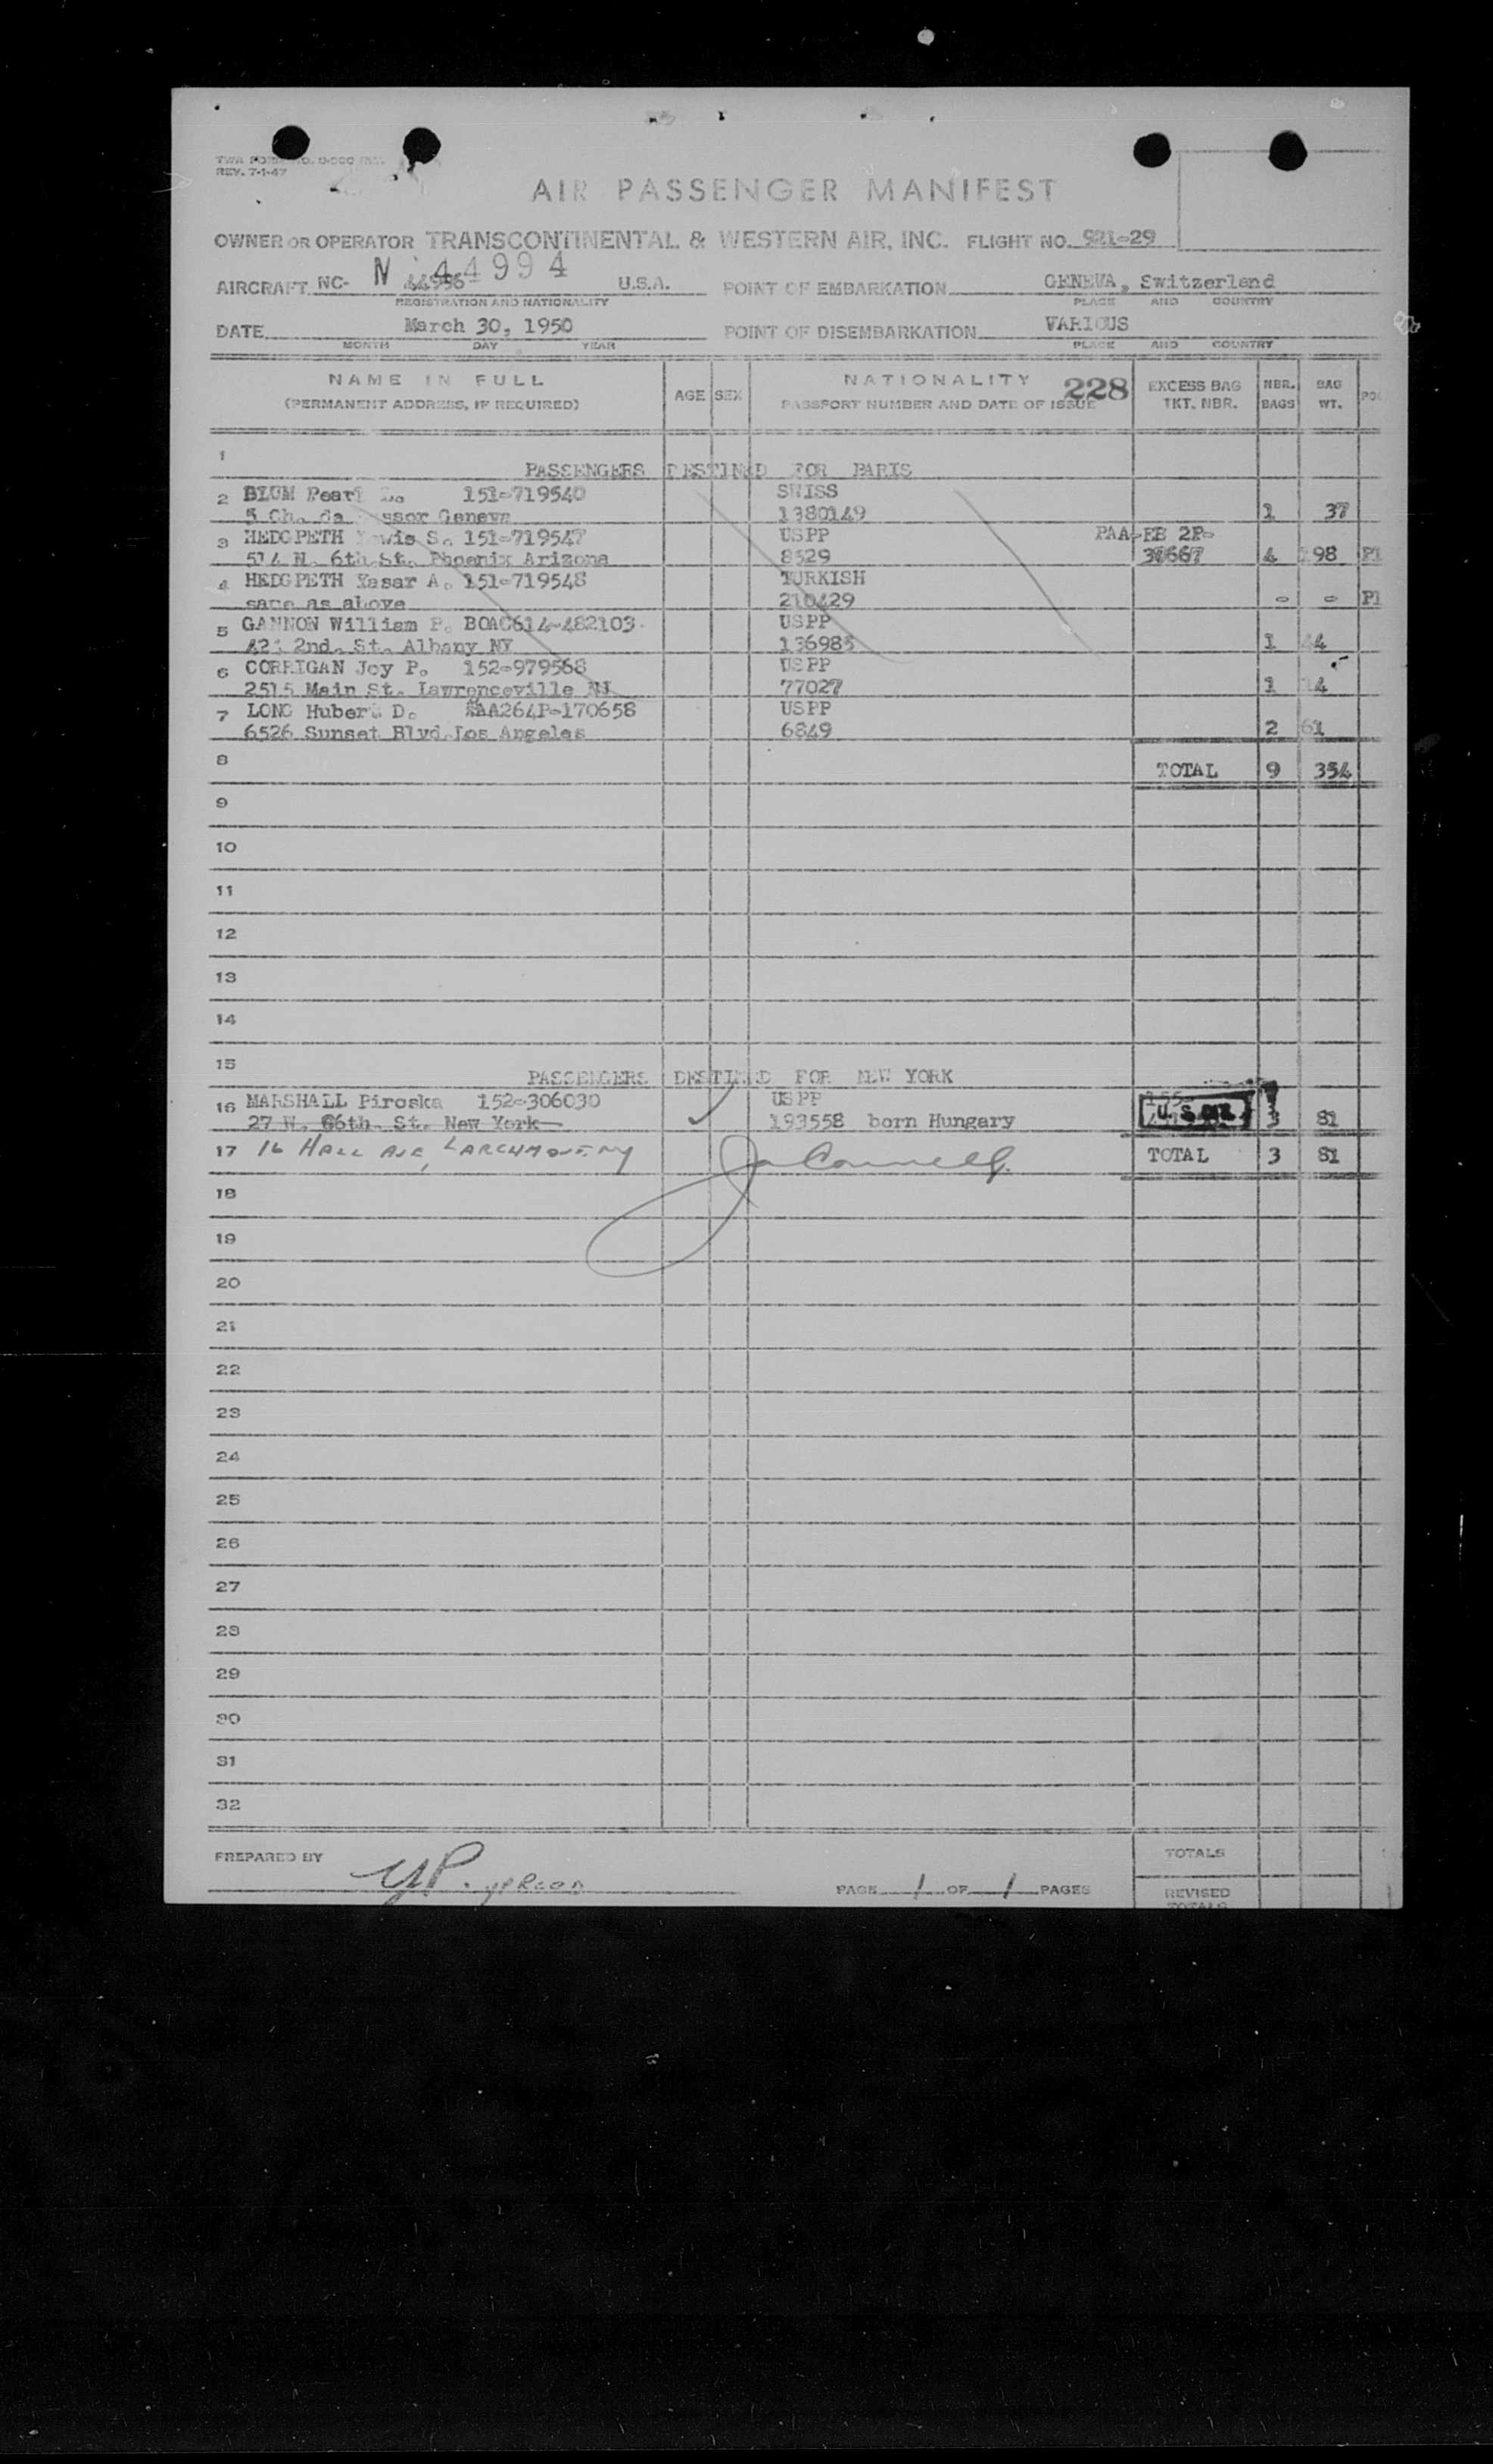 REV. 7-1-47
AIR PASSENGER MANIFEST
OWNER OR OPERATOR TRANSCONTINENTAL & WESTERN AIR, INC. FLIGHT NO. 921-29
AIRCRAFT NC- N 44994 U.S.A. POINT OF EMBARKATION GENEVA, Switzerland
REGISTRATION AND NATIONALITY PLACE AND COUNTRY
DATE March 30, 1950 POINT OF DISEMBARKATION VARIOUS
MONTH DAY YEAR PLACE AND COUNTRY
NAME IN FULL AGE SEX NATIONALITY 228 EXCESS BAG NBR. BAG
(PERMANENT ADDRESS, IF REQUIRED) PASSPORT NUMBER AND DATE OF ISSUE TKT. NBR. BAGS WT.
1
PASSENGERS DESTINED FOR PARIS
2 BLUM Pearl 151-719540 SWISS
5 Ch. Geneva 1380149 1 37
3 HEDGPETH S. 151-719547 USPP PAA-EB 2P-
514 N. 6th St. Phoenix Arizona 8529 4 98
4 HEDGPETH Yasar A. 151-719548 TURKISH
same as above 210429 - -
5 GANNON William P. BOAC614-482103 USPP
2nd. St. Albany NY 136985 1 44
6 CORRIGAN Joy P. 152-979568 USPP
2515 Main St. Lawrenceville NJ 77027 1
7 LONG Hubert D. 264P-170658 USPP
6526 Sunset Blvd. Los Angeles 6849 2 61
8 TOTAL 9 354
9
10
11
12
13
14
15
PASSENGERS DESTINED FOR NEW YORK
16 MARSHALL Piroska 152-306030 USPP
27 W. 66th. St. New York 193558 born Hungary 3 81
17 16 HALL AVE, LARCHMONT NY TOTAL 3 81
18
19
20
21
22
23
24
25
26
27
28
29
30
31
32
PREPARED BY TOTALS
PAGE 1 OF 1 PAGES REVISED
TOTALS